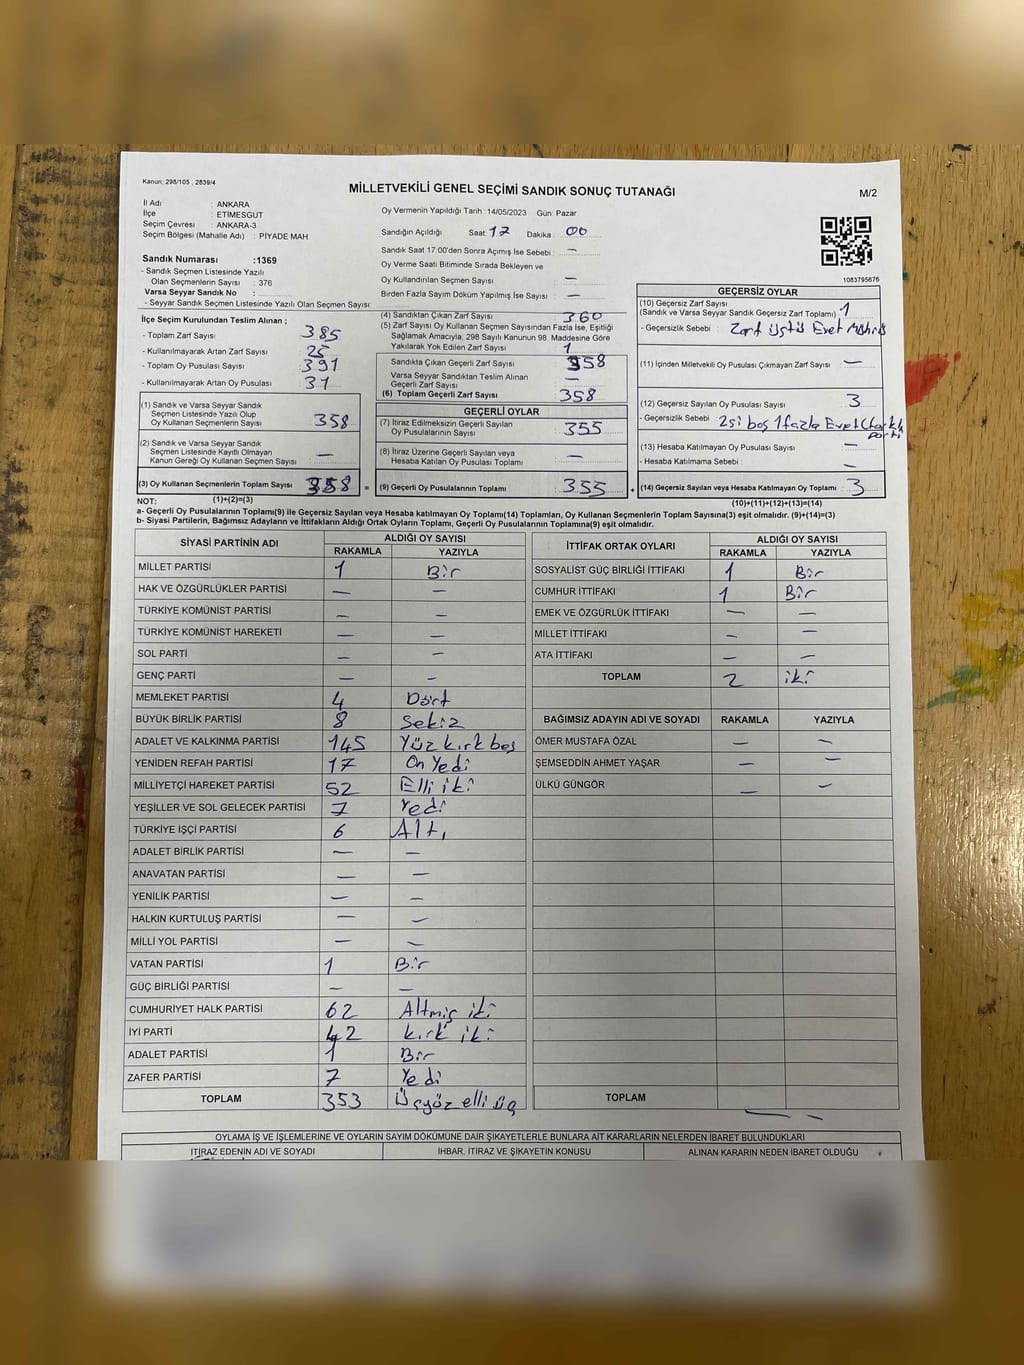 Kanun; 298/105 , 2839/4
MİLLETVEKİLİ GENEL SEÇİMİ SANDIK SONUÇ TUTANAĞI
M/2
İl Adı : ANKARA
İlçe : ETİMESGUT
Seçim Çevresi : ANKARA-3
Seçim Bölgesi (Mahalle Adı) : PİYADE MAH.
Sandık Numarası :1369
- Sandık Seçmen Listesinde Yazılı
Olan Seçmenlerin Sayısı : 376
Varsa Seyyar Sandık No :
- Seyyar Sandık Seçmen Listesinde Yazılı Olan Seçmen Sayısı:
Oy Vermenin Yapıldığı Tarih :14/05/2023 Gün: Pazar
Sandığın Açıldığı Saat 17 Dakika : 00
Sandık Saat 17:00'den Sonra Açımış İse Sebebi : —
Oy Verme Saati Bitiminde Sırada Bekleyen ve
Oy Kullandırılan Seçmen Sayısı —
Birden Fazla Sayım Döküm Yapılmış İse Sayısı : —
1083795676
İlçe Seçim Kurulundan Teslim Alınan ;
- Toplam Zarf Sayısı : 385
- Kullanılmayarak Artan Zarf Sayısı : 25
- Toplam Oy Pusulası Sayısı : 391
- Kullanılmayarak Artan Oy Pusulası : 31
(1) Sandık ve Varsa Seyyar Sandık
Seçmen Listesinde Yazılı Olup
Oy Kullanan Seçmenlerin Sayısı : 358
(2) Sandık ve Varsa Seyyar Sandık
Seçmen Listesinde Kayıtlı Olmayan
Kanun Gereği Oy Kullanan Seçmen Sayısı : —
(3) Oy Kullanan Seçmenlerin Toplam Sayısı : 358
(4) Sandıktan Çıkan Zarf Sayısı : 360
(5) Zarf Sayısı Oy Kullanan Seçmen Sayısından Fazla İse, Eşitliği
Sağlamak Amacıyla, 298 Sayılı Kanunun 98. Maddesine Göre
Yakılarak Yok Edilen Zarf Sayısı: 1
Sandıkta Çıkan Geçerli Zarf Sayısı : 358
Varsa Seyyar Sandıktan Teslim Alınan
Geçerli Zarf Sayısı : —
(6) Toplam Geçerli Zarf Sayısı : 358
GEÇERLİ OYLAR
(7) İtiraz Edilmeksizin Geçerli Sayılan
Oy Pusulalarının Sayısı : 355
(8) İtiraz Üzerine Geçerli Sayılan veya
Hesaba Katılan Oy Pusulası Toplamı : —
= (9) Geçerli Oy Pusulalarının Toplamı : 355
GEÇERSİZ OYLAR
(10) Geçersiz Zarf Sayısı
(Sandık ve Varsa Seyyar Sandık Geçersiz Zarf Toplamı) : 1
- Geçersizlik Sebebi : Zarf üstü Evet
(11) İçinden Milletvekili Oy Pusulası Çıkmayan Zarf Sayısı : —
(12) Geçersiz Sayılan Oy Pusulası Sayısı : 3
- Geçersizlik Sebebi : 2si boş 1 fazla Evet
(13) Hesaba Katılmayan Oy Pusulası Sayısı : —
- Hesaba Katılmama Sebebi : —
+ (14) Geçersiz Sayılan veya Hesaba Katılmayan Oy Toplamı : 3
NOT: (1)+(2)=(3)
(10)+(11)+(12)+(13)=(14)
a- Geçerli Oy Pusulalarının Toplamı(9) ile Geçersiz Sayılan veya Hesaba Katılmayan Oy Toplamı(14) Toplamları, Oy Kullanan Seçmenlerin Toplam Sayısına(3) eşit olmalıdır. (9)+(14)=(3)
b- Siyasi Partilerin, Bağımsız Adayların ve İttifakların Aldığı Ortak Oyların Toplamı, Geçerli Oy Pusulalarının Toplamına(9) eşit olmalıdır.
SİYASİ PARTİNİN ADI ALDIĞI OY SAYISI
RAKAMLA YAZIYLA
MİLLET PARTİSİ 1 Bir
HAK VE ÖZGÜRLÜKLER PARTİSİ — —
TÜRKİYE KOMÜNİST PARTİSİ — —
TÜRKİYE KOMÜNİST HAREKETİ — —
SOL PARTİ — —
GENÇ PARTİ — —
MEMLEKET PARTİSİ 4 Dört
BÜYÜK BİRLİK PARTİSİ 8 Sekiz
ADALET VE KALKINMA PARTİSİ 145 Yüz kırk beş
YENİDEN REFAH PARTİSİ 17 On Yedi
MİLLİYETÇİ HAREKET PARTİSİ 52 Elli iki
YEŞİLLER VE SOL GELECEK PARTİSİ 7 Yedi
TÜRKİYE İŞÇİ PARTİSİ 6 Altı
ADALET BİRLİK PARTİSİ — —
ANAVATAN PARTİSİ — —
YENİLİK PARTİSİ — —
HALKIN KURTULUŞ PARTİSİ — —
MİLLİ YOL PARTİSİ — —
VATAN PARTİSİ 1 Bir
GÜÇ BİRLİĞİ PARTİSİ — —
CUMHURİYET HALK PARTİSİ 62 Altmış iki
İYİ PARTİ 42 kırk iki
ADALET PARTİSİ 1 Bir
ZAFER PARTİSİ 7 Yedi
TOPLAM 353 Üçyüz elli üç
İTTİFAK ORTAK OYLARI ALDIĞI OY SAYISI
RAKAMLA YAZIYLA
SOSYALİST GÜÇ BİRLİĞİ İTTİFAKI 1 Bir
CUMHUR İTTİFAKI 1 Bir
EMEK VE ÖZGÜRLÜK İTTİFAKI — —
MİLLET İTTİFAKI — —
ATA İTTİFAKI — —
TOPLAM 2 iki
BAĞIMSIZ ADAYIN ADI VE SOYADI RAKAMLA YAZIYLA
ÖMER MUSTAFA ÖZAL — —
ŞEMSEDDİN AHMET YAŞAR — —
ÜLKÜ GÜNGÖR — —
TOPLAM — —
OYLAMA İŞ VE İŞLEMLERİNE VE OYLARIN SAYIM DÖKÜMÜNE DAİR ŞİKAYETLERLE BUNLARA AİT KARARLARIN NELERDEN İBARET BULUNDUKLARI
İTİRAZ EDENİN ADI VE SOYADI İHBAR, İTİRAZ VE ŞİKAYETİN KONUSU ALINAN KARARIN NEDEN İBARET OLDUĞU